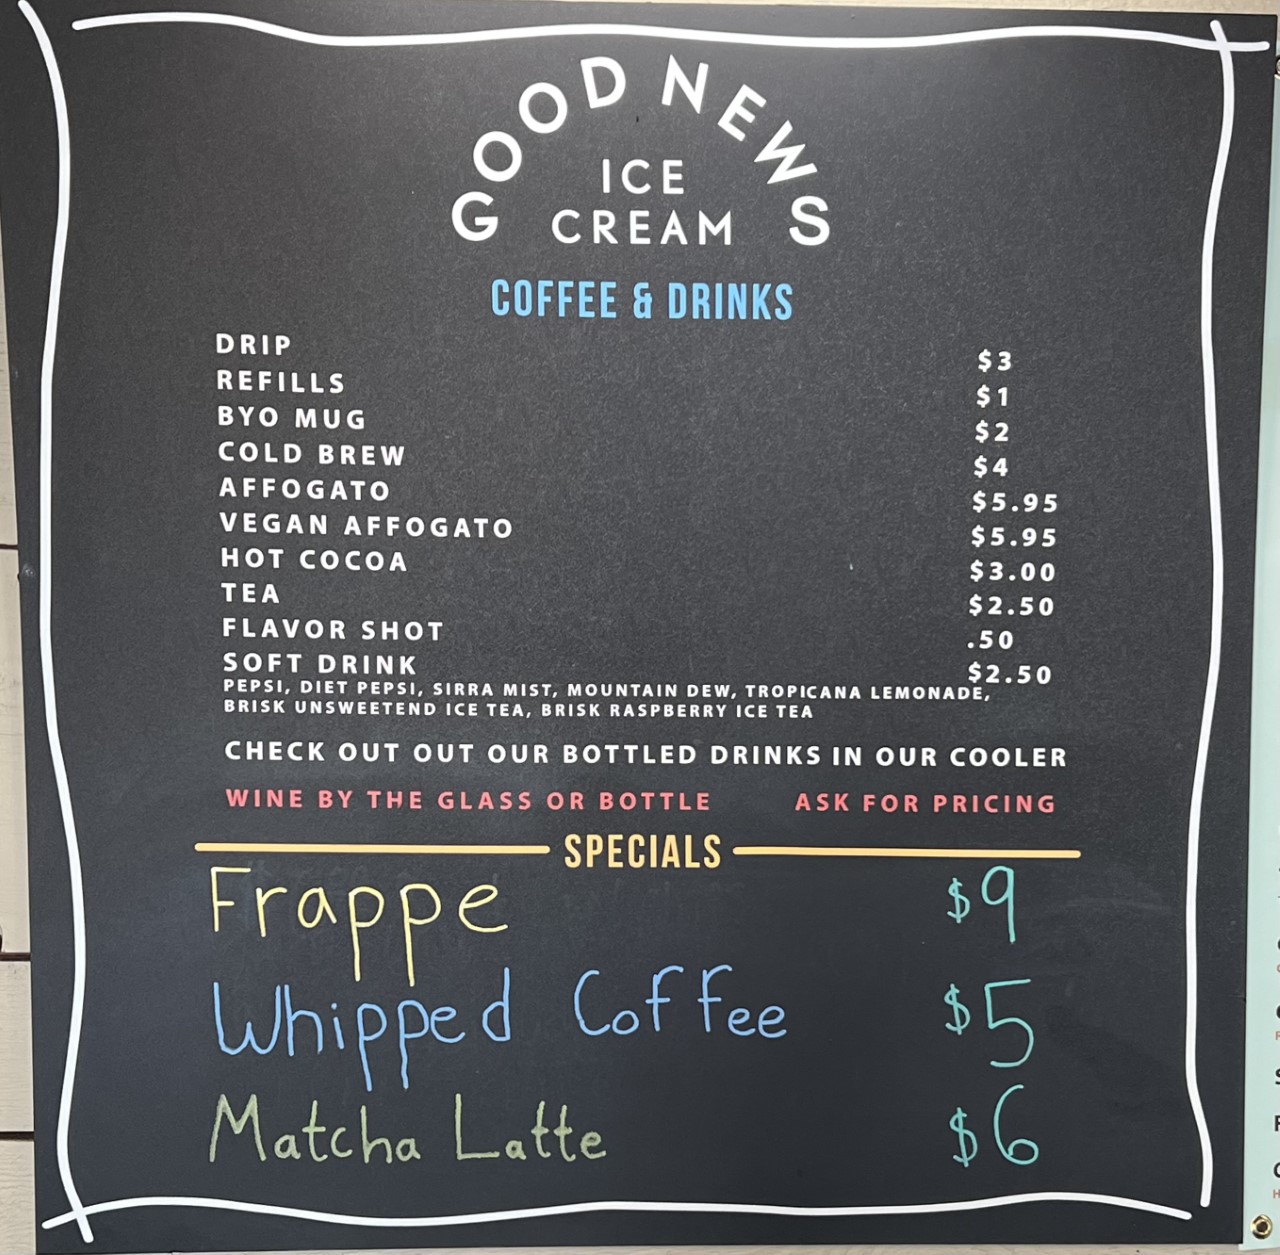 GOOD NEWS
ICE
CREAM
COFFEE & DRINKS
DRIP $3
REFILLS $1
BYO MUG $2
COLD BREW $4
AFFOGATO $5.95
VEGAN AFFOGATO $5.95
HOT COCOA $3.00
TEA $2.50
FLAVOR SHOT .50
SOFT DRINK $2.50
PEPSI, DIET PEPSI, SIRRA MIST, MOUNTAIN DEW, TROPICANA LEMONADE,
BRISK UNSWEETEND ICE TEA, BRISK RASPBERRY ICE TEA
CHECK OUT OUT OUR BOTTLED DRINKS IN OUR COOLER
WINE BY THE GLASS OR BOTTLE ASK FOR PRICING
SPECIALS
Frappe $9
Whipped Coffee $5
Matcha Latte $6